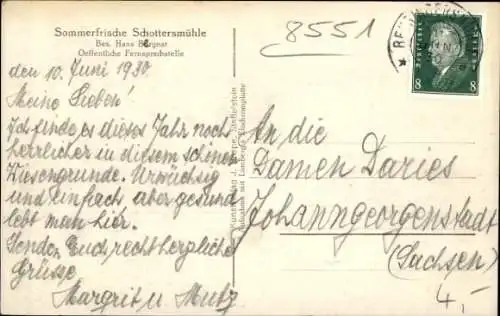 Sommerfrische Schottersmühle
Bes. Hans Bezgnat
Oeffentliche Fernsprechstelle
8551
den 10. Juni 1930.
Meine Lieben!
Ich finde es dieses Jahr noch
herrlicher in diesem schönen
Wiesengrunde. Urwüchsig
und einfach aber gesund
lebt man hier.
Senden Euch recht herzliche
Grüsse
Margrit u. Mutz
An die
Damen Daries
Johanngeorgenstadt
(Sachsen)
4,-
8 8